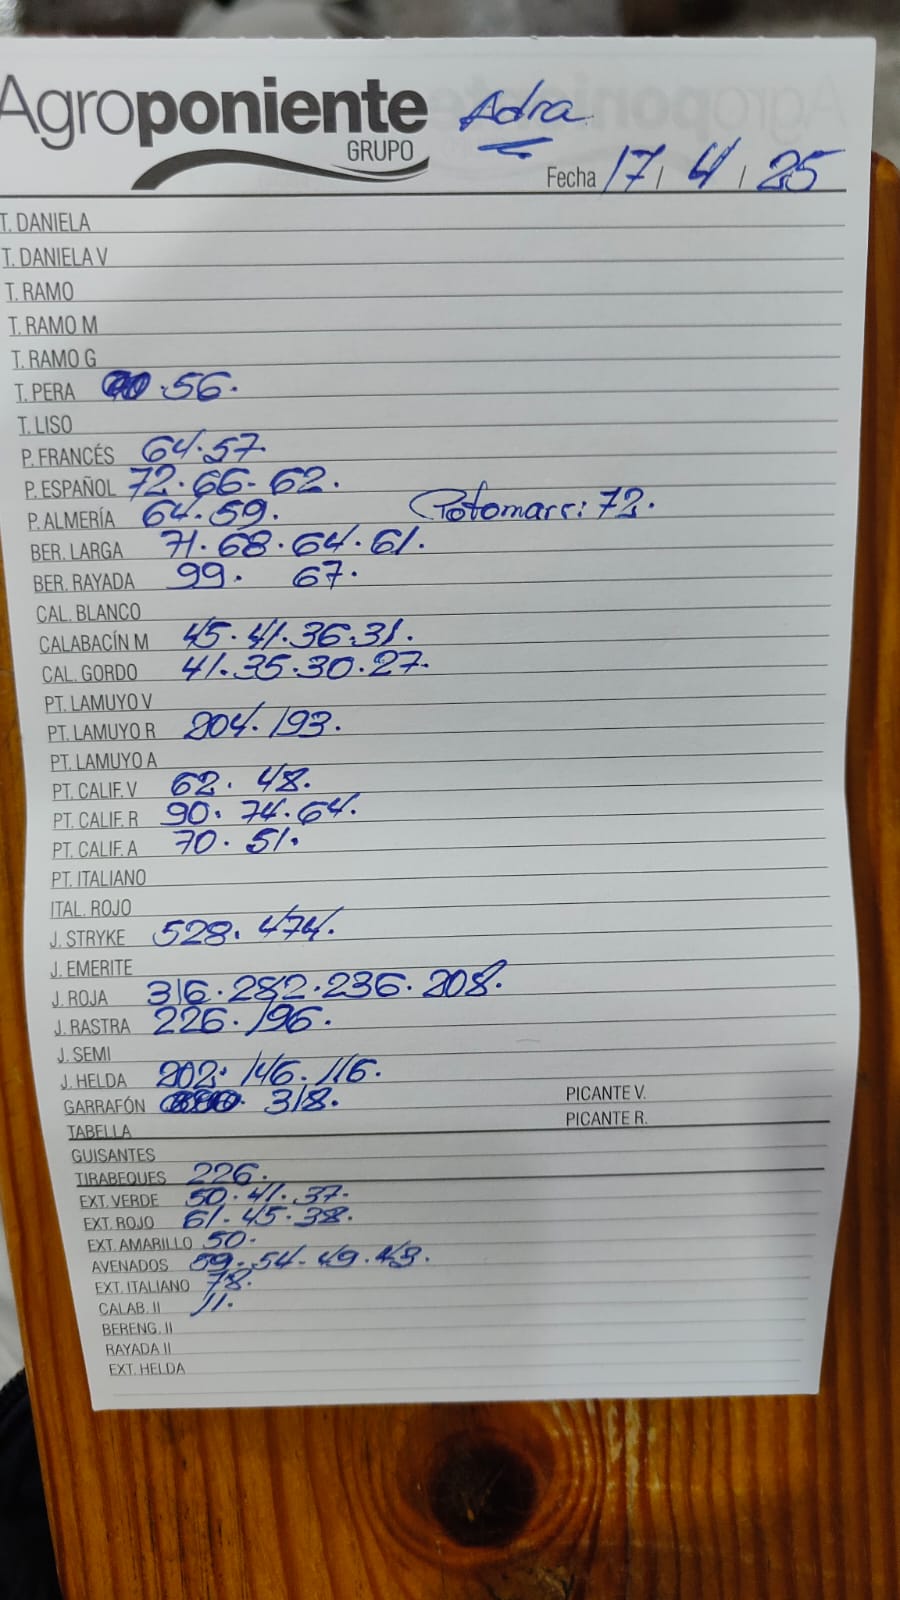 Agroponiente Adra
GRUPO
Fecha 17 / 4 / 25
T. DANIELA
T. DANIELA V
T. RAMO
T. RAMO M
T. RAMO G
T. PERA · 56.
T. LISO
P. FRANCÉS 64. 57.
P. ESPAÑOL 72. 66. 62.
P. ALMERÍA 64. 59. Potomarr: 72.
BER. LARGA 71. 68. 64. 61.
BER. RAYADA 99. 67.
CAL. BLANCO
CALABACÍN M 45. 41. 36. 31.
CAL. GORDO 41. 35. 30. 27.
PT. LAMUYO V
PT. LAMUYO R 204. 193.
PT. LAMUYO A
PT. CALIF. V 62. 48.
PT. CALIF. R 90. 74. 64.
PT. CALIF. A 70. 51.
PT. ITALIANO
ITAL. ROJO
J. STRYKE 528. 474.
J. EMERITE
J. ROJA 316. 282. 236. 208.
J. RASTRA 226. 196.
J. SEMI
J. HELDA 202. 146. 116.
GARRAFÓN 318. PICANTE V.
TABELLA PICANTE R.
GUISANTES
TIRABEQUES 226.
EXT. VERDE 50. 41. 37.
EXT. ROJO 61. 45. 38.
EXT. AMARILLO 50.
AVENADOS 59. 54. 49. 43.
EXT. ITALIANO 78.
CALAB. II 11.
BERENG. II
RAYADA II
EXT. HELDA